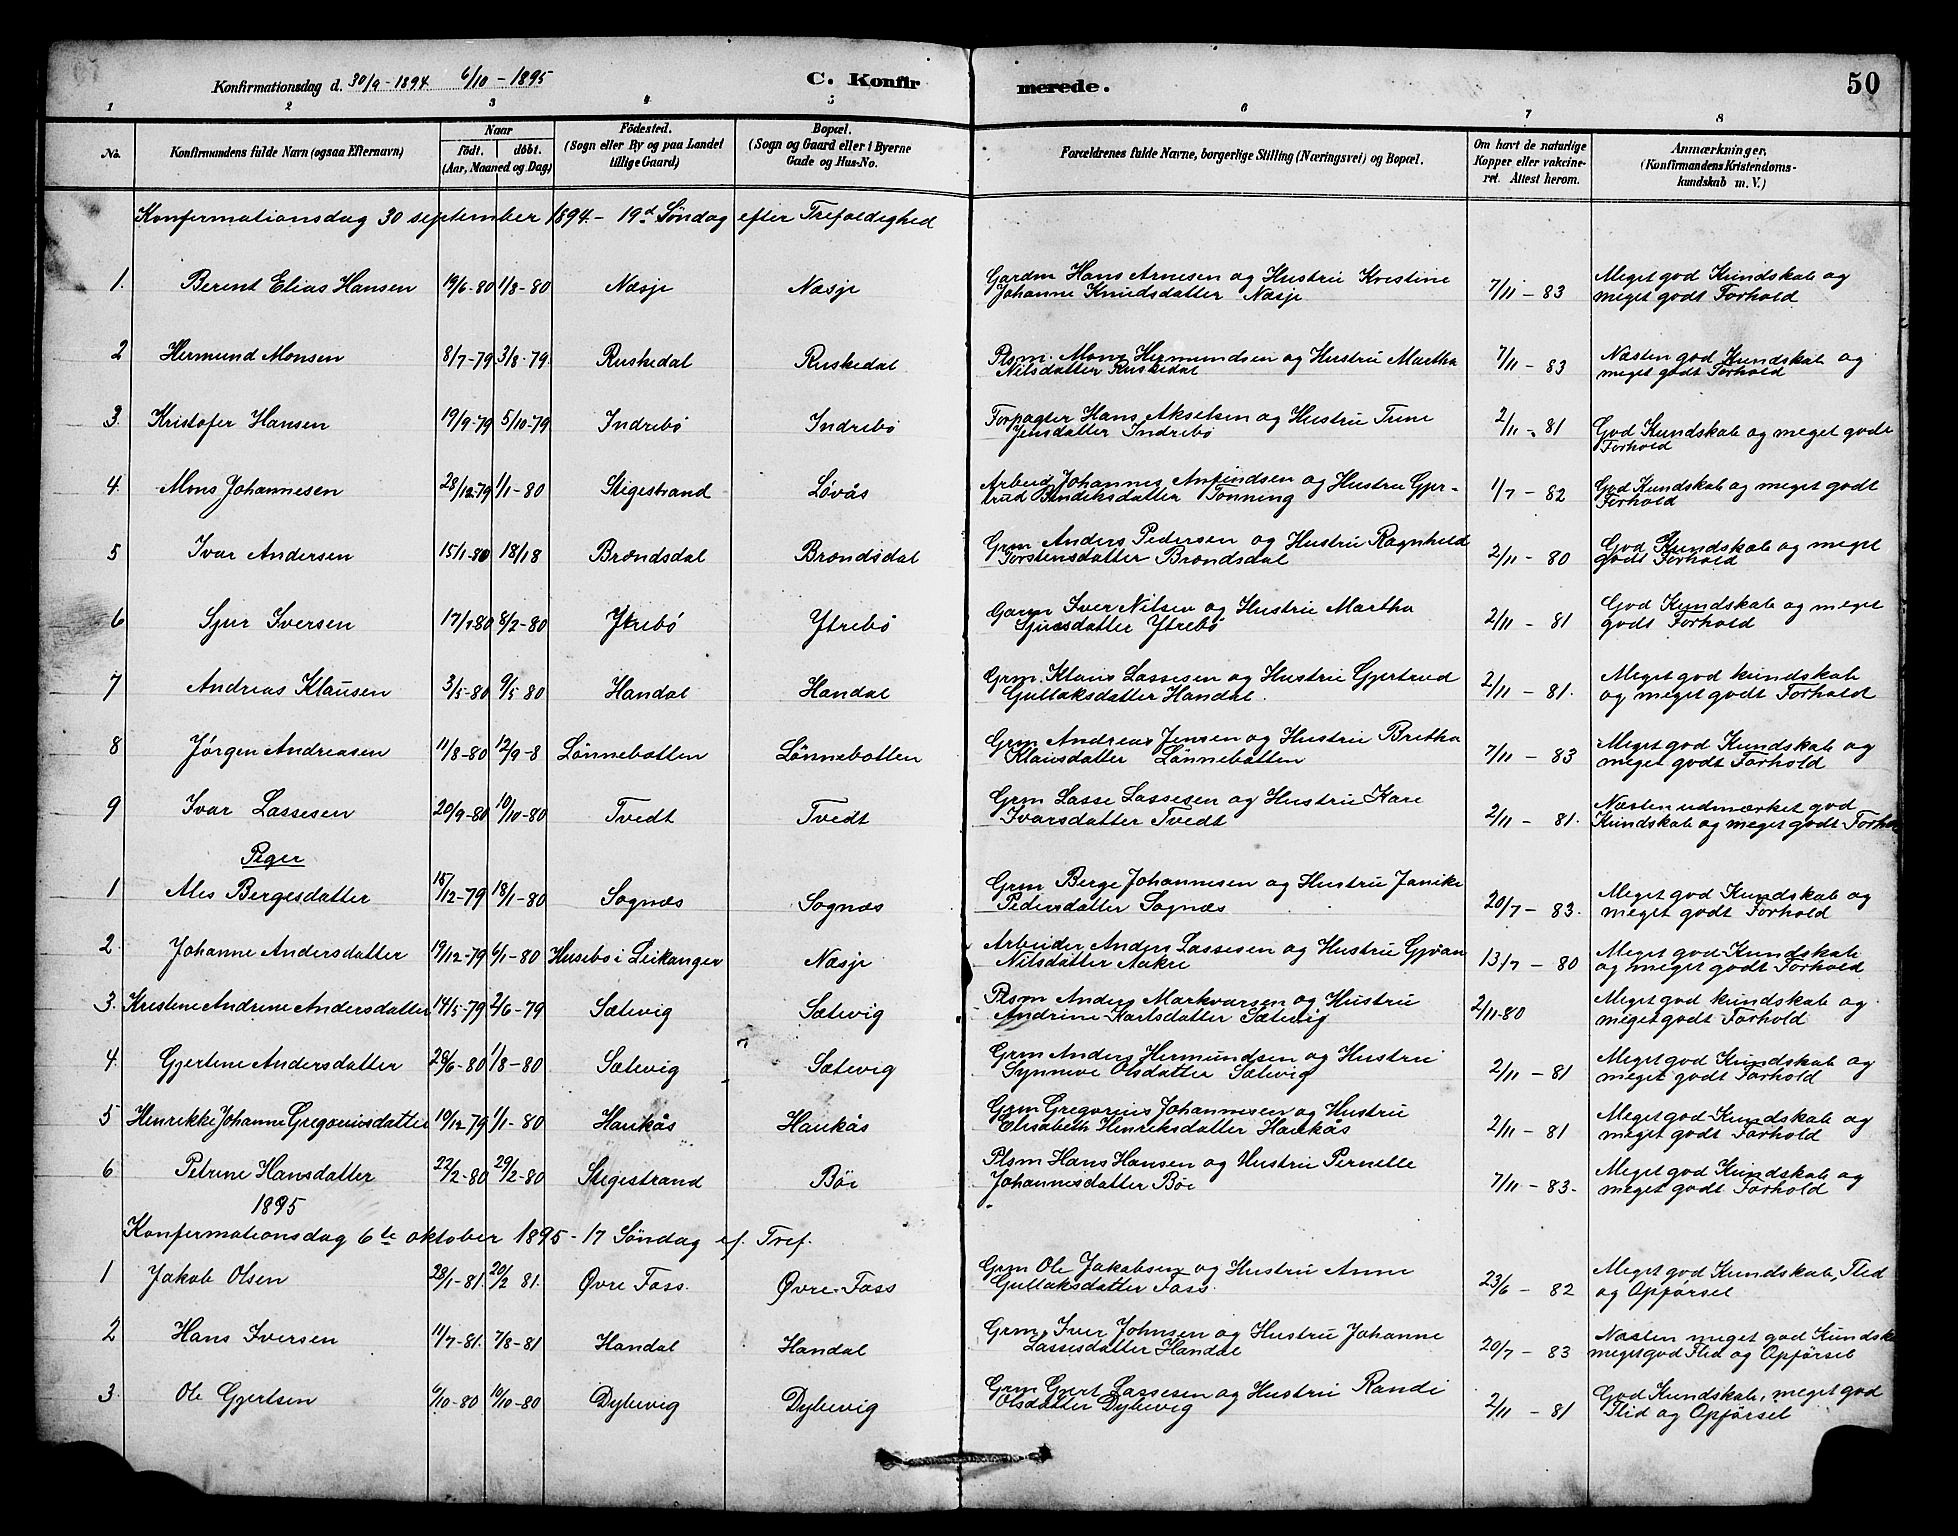 Konfirmationsdag d. 30/9-1894 6/10-1895 C. Konfir merede. 50
1 2 3 4 5 6 7 8
No. Konfirmandens fulde Navn (ogsaa Efternavn) Naar födt. döbt. (Aar, Maaned og Dag) Födested. (Sogn eller By og paa Landet tillige Gaard) Bopæl. (Sogn og Gaard eller i Byerne Gade og Hus-No. Forældrenes fulde Navne, borgerlige Stilling (Næringsvei) og Bopæl. Om havt de naturlige Kopper eller vakcineret. Attest herom. Anmærkninger, (Konfirmandens Kristendomskundskab m. V.)
Konfirmationsdag 30 september 1894 - 19d Søndag efter Trefoldighed
1. Berent Elias Hansen 19/6-80 1/8-80 Næsje Næsje Gardm Hans Arnesen og Hustru Kristine 7/11-83 Meget god Kundskab og
Johanne Knudsdatter Næsje meget godt Forhold
2 Hermund Monsen 8/7-79 3/8-79. Ruskedal Ruskedal Plsm. Mons Hermundsen og Hustru Martha 7/11-83 Næsten god Kundskab og
Nilsdatter Ruskedal meget godt Forhold
3. Kristofer Hansen 19/9-79 5/10-79 Indrebö Indrebö Forpagter Hans Akselsen og Hustru Trine 2/11-81 God Kundskab og meget godt
Jensdatter Indrebö Forhold
4. Mons Johannesen 28/12-79 1/1-80 Stigestrand Lövås Arbeid Johannes Anfindsen og Hustru Gjer- 1/7-82 God Kundskab og meget godt
trud Bendiksdatter Tonning Forhold
5 Ivar Andersen 15/1-80 18/18 Brendsdal Brendsdal Grm Anders Pedersen og Hustru Ragnhild 2/11-80 God Kundskab og meget
Torstensdatter Brendsdal godt Forhold
6 Sjur Iversen 17/1-80 8/2-80 Ytrebö Ytrebö Garm Iver Nilsen og Hustru Martha 2/11-81 God Kundskab og meget
Sjursdatter Ytrebö godt Forhold
7 Andreas Klausen 3/5-80 9/5-80 Handal Handal Grm. Klaus Lassesen og Hustru Gjertrud 2/11-81. Meget god kundskab
Gullaksdatter Handal. og meget godt Forhold
8 Jörgen Andreasen 11/8-80 12/9-8 Lönnebotten Lönnebotten Grm Andreas Jensen og Hustru Bretha 7/11-83 Meget god Kundskab og
Klausdatter Lönnebotten meget godt Forhold
9 Ivar Lassesen 20/9-80 10/10-80 Tvedt Tvedt Grm Lasse Lassesen og Hustru Kari 2/11-81. Næsten udmærket god
Ivarsdatter Tvedt Kundskab og meget godt Forhol
Piger
1 Ales Bergesdatter 15/12-79 18/1-80 Sognæs Sognæs Grm Berge Johannesen og Hustru Janike 20/7-83. Meget god Kundskab og
Pedersdatter Sognæs meget godt Forhold
2. Johanne Andersdatter 19/12-79 6/1-80 Husebö i Leikanger Næsje Arbeider Anders Lassesen og Hustru Gjöan 13/7-80 Meget god Kundskab
Nilsdatter Aakre og meget godt Forhold
3. Kristine Andrine Andersdatter 14/5-79 2/6-79 Sætevig Sætevig Plsm Anders Markvarsen og Hustru 2/11-80 Meget god kundskab og
Andrine Karlsdatter Sætevig meget godt Forhold
4. Gjertine Andersdatter 28/6-80 1/8-80 Sætevig Sætevig Grm Anders Hermundsen og Hustru 2/11-81 Meget god Kundskab og
Synneve Olsdatter Sætevig meget godt Forhold
5 Henrikke Johanne Gregoriusdatter 19/12-79 1/1-80 Haukås Haukås Grm Gregorius Johannesen og Hustru 2/11-81 Meget god Kundskab og
Elisabeth Henriksdatter Haukås meget godt Forhold
6 Petrine Hansdatter 22/2-80 29/2-80 Stigestrand Böe Plsm Hans Hansen og Hustru Pernelle 7/11-83. Meget god Kundskab og
Johannesdatter Böe meget godt Forhold
1895
Konfirmationsdag 6te oktober 1895 - 17 Søndag ef. Tref.
1 Jakob Olsen 28/1-81. 20/2 81. Øvre Fass. Øvre-Fass Grm Ole Jakobsen og Hustru Anne 23/6-82 Meget god Kundskab, Flid
Gullaksdatter Fass. og Opförsel
2 Hans Iversen 11/7-81. 7/8-81 Handal Handal Grm. Iver Johnsen og Hustru Johanne 20/7-83 Næsten meget god Kundsk
Lassesdatter Handal meget god Flid og Opförsel
3. Ole Gjertsen 6/10-80 10/10-80 Dybevig Dybevig Grm Gjert Lassesen og Hustru Randi 2/11-81 God Kundskab, meget god
Olsdatter Dybevig Flid og Opförsel